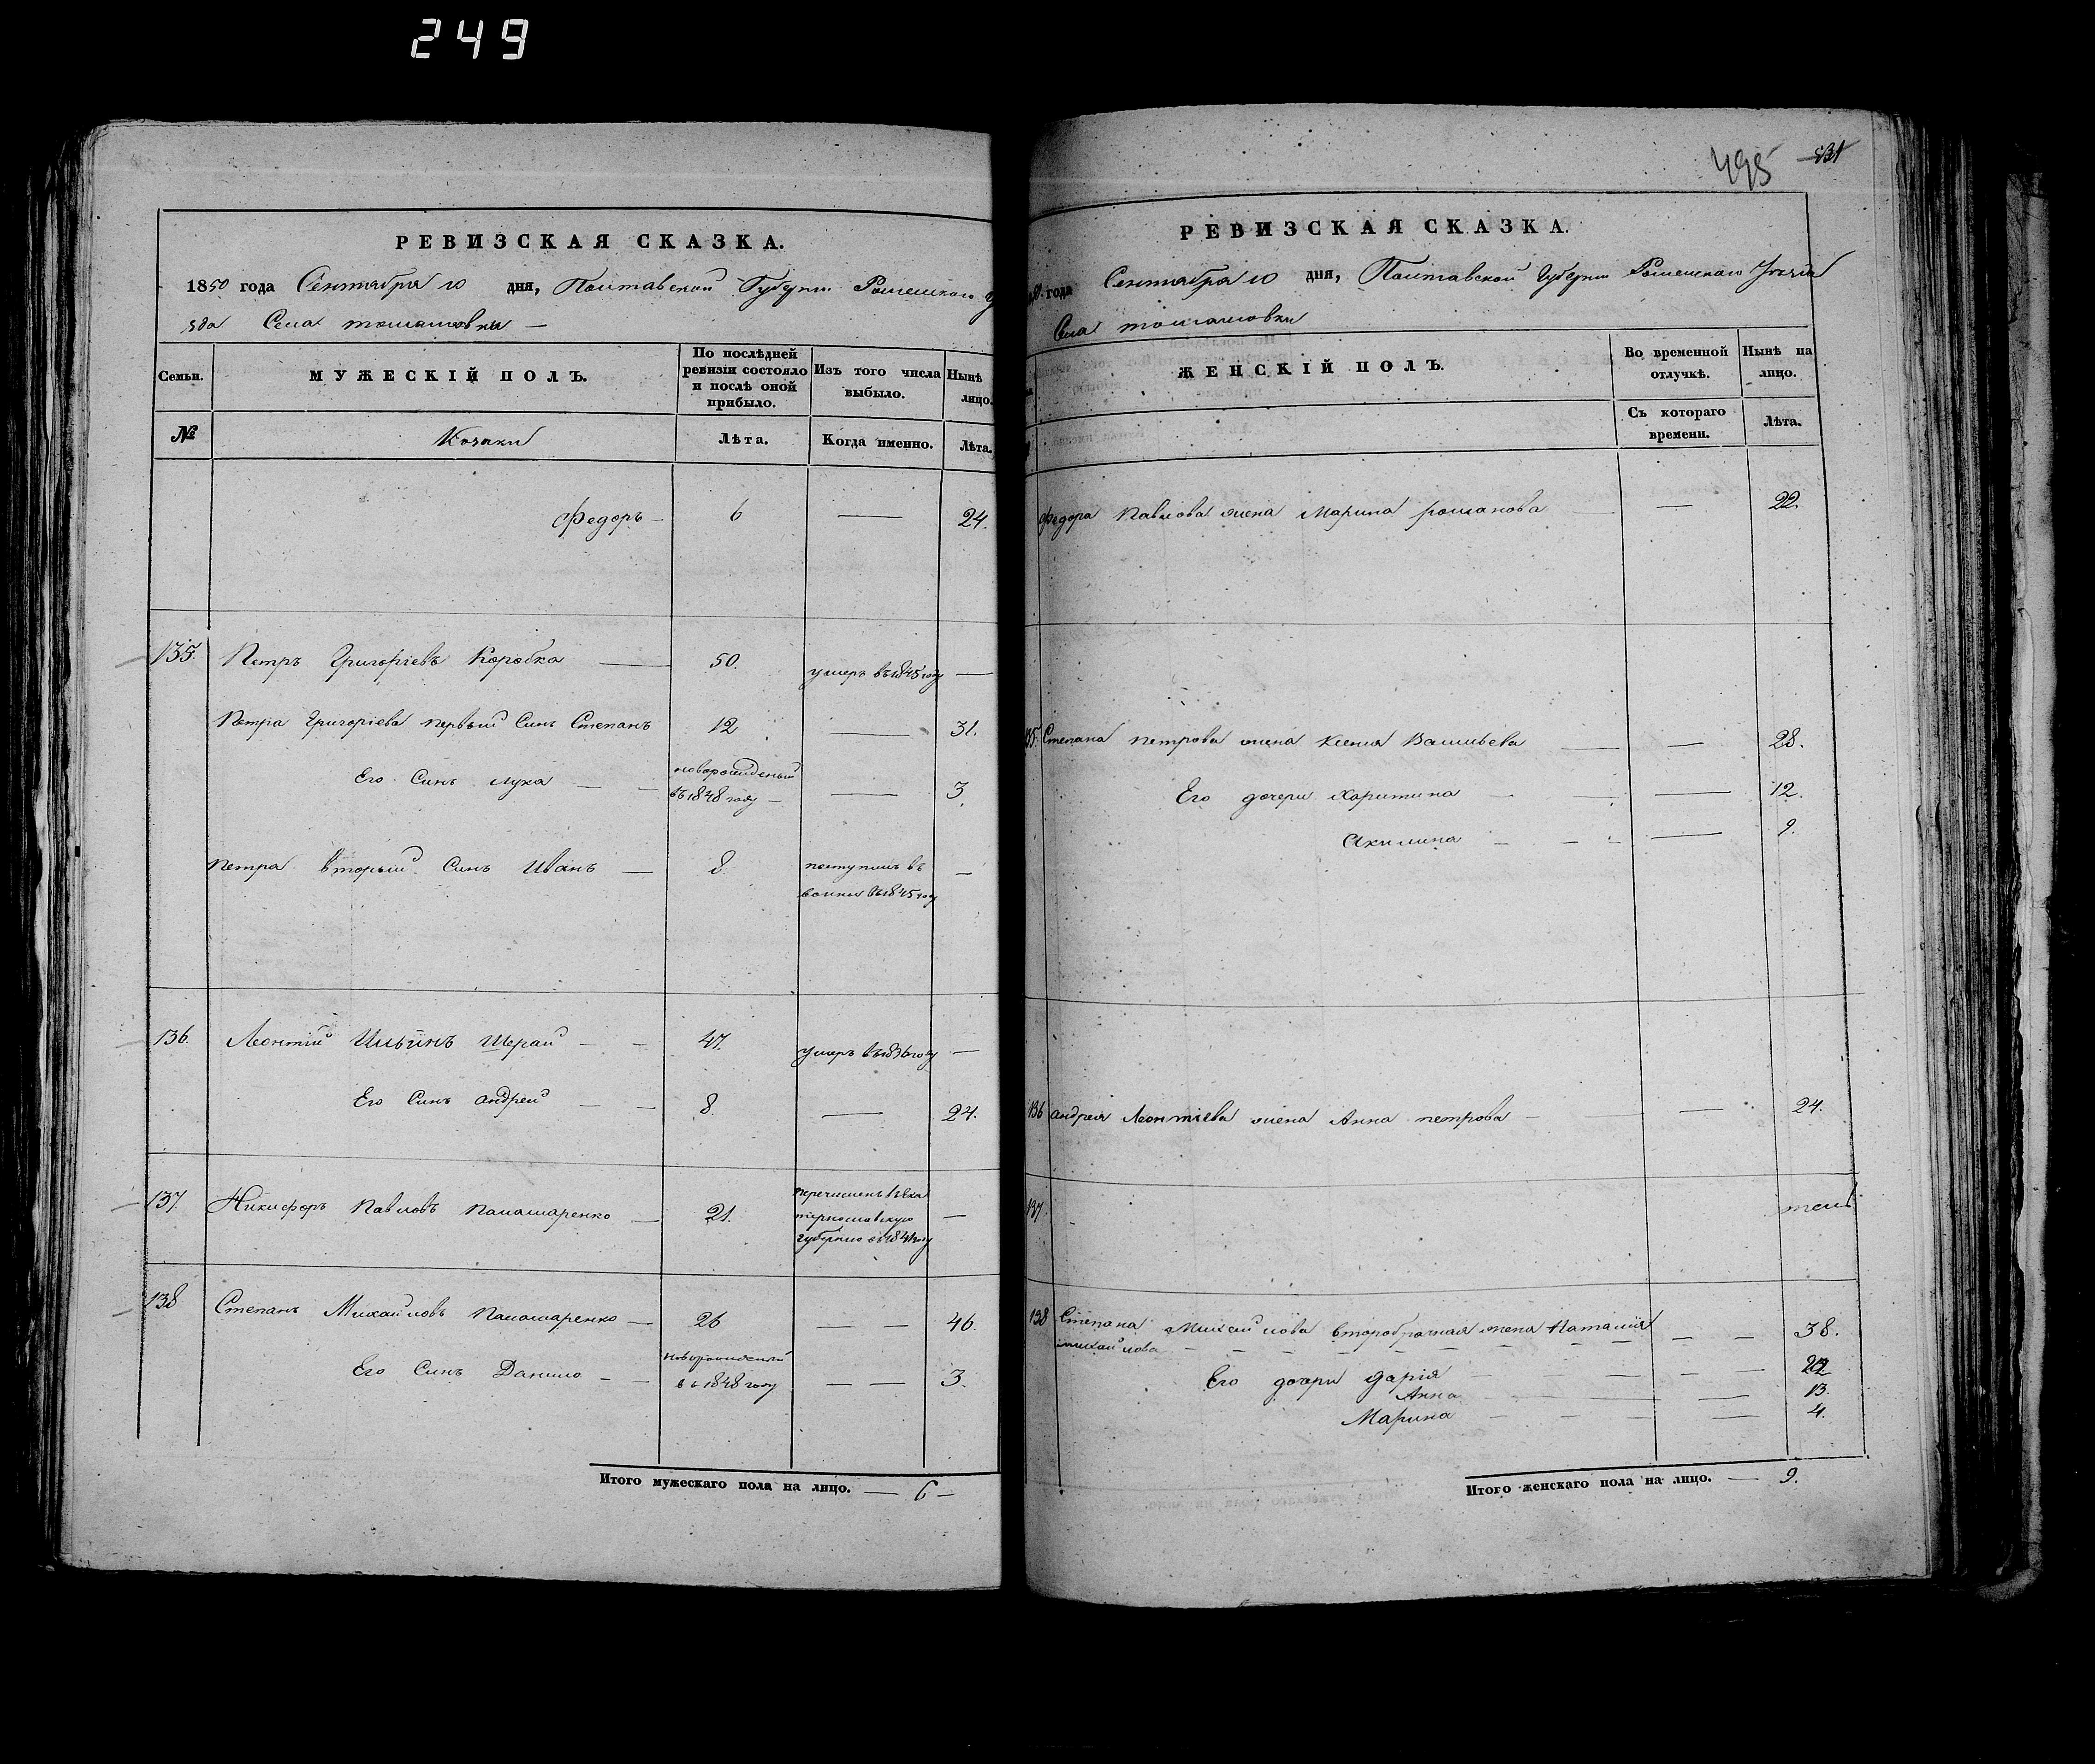 249
РЕВИЗСКАЯ СКАЗКА.
1850 года Сентября 10 дня, Полтавской Губерніи Роменскаго У
зда Села томашовки —
Семьи. МУЖЕСКІЙ ПОЛЪ. По послѣдней ревизіи состояло и послѣ оной прибыло. Изъ того числа выбыло. Нынѣ лицо.
№ Козаки Лѣта. Когда именно. Лѣта.
Федоръ — 6 — 24.
135. Петръ Григоріевъ Коробка — 50. умеръ въ 1845 году —
Петра Григоріева первый Синъ Степанъ 12 — 31.
Его Синъ лука — — новорожденый въ 1848 году — — 3.
Петра вторый Синъ Иванъ — 8. поступилъ въ 1845 году —
136. Леонтій Ильинъ Шерай — — 47. умеръ въ 1836 году —
Его Синъ андрей — — 8. — 24.
137. Никифоръ Павловъ Паламаренко — 21. перечисленъ губернію въ году —
138 Степанъ Михайловъ Паламаренко — 26 — — 46.
Его Синъ Данило — — новорожденый въ 1848 году — — 3.
Итого мужескаго пола на лицо. — 6 —
495 831
РЕВИЗСКАЯ СКАЗКА.
года Сентября 10 дня, Полтавской Губерніи Роменскаго Уѣзда
Села томашовки
ЖЕНСКІЙ ПОЛЪ. Во временной отлучкѣ. Нынѣ на лицо.
Съ котораго времени. Лѣта.
Федора Павлова жена Марина романова — 22.
135. Степана петрова жена Васильева — — 28.
Его дочери Харитина — — — 12.
Акилина — — — — 9.
136 андрея Леонтіева жена Анна петрова — — 24.
137.
138 Степана Михайлова второбрачная жена Наталія — — 38.
михайлова — — — — — — —
Его дочери Дарія — — — — —
Анна — — — 13.
Марина — — — — — 4.
Итого женскаго пола на лицо. — 9.